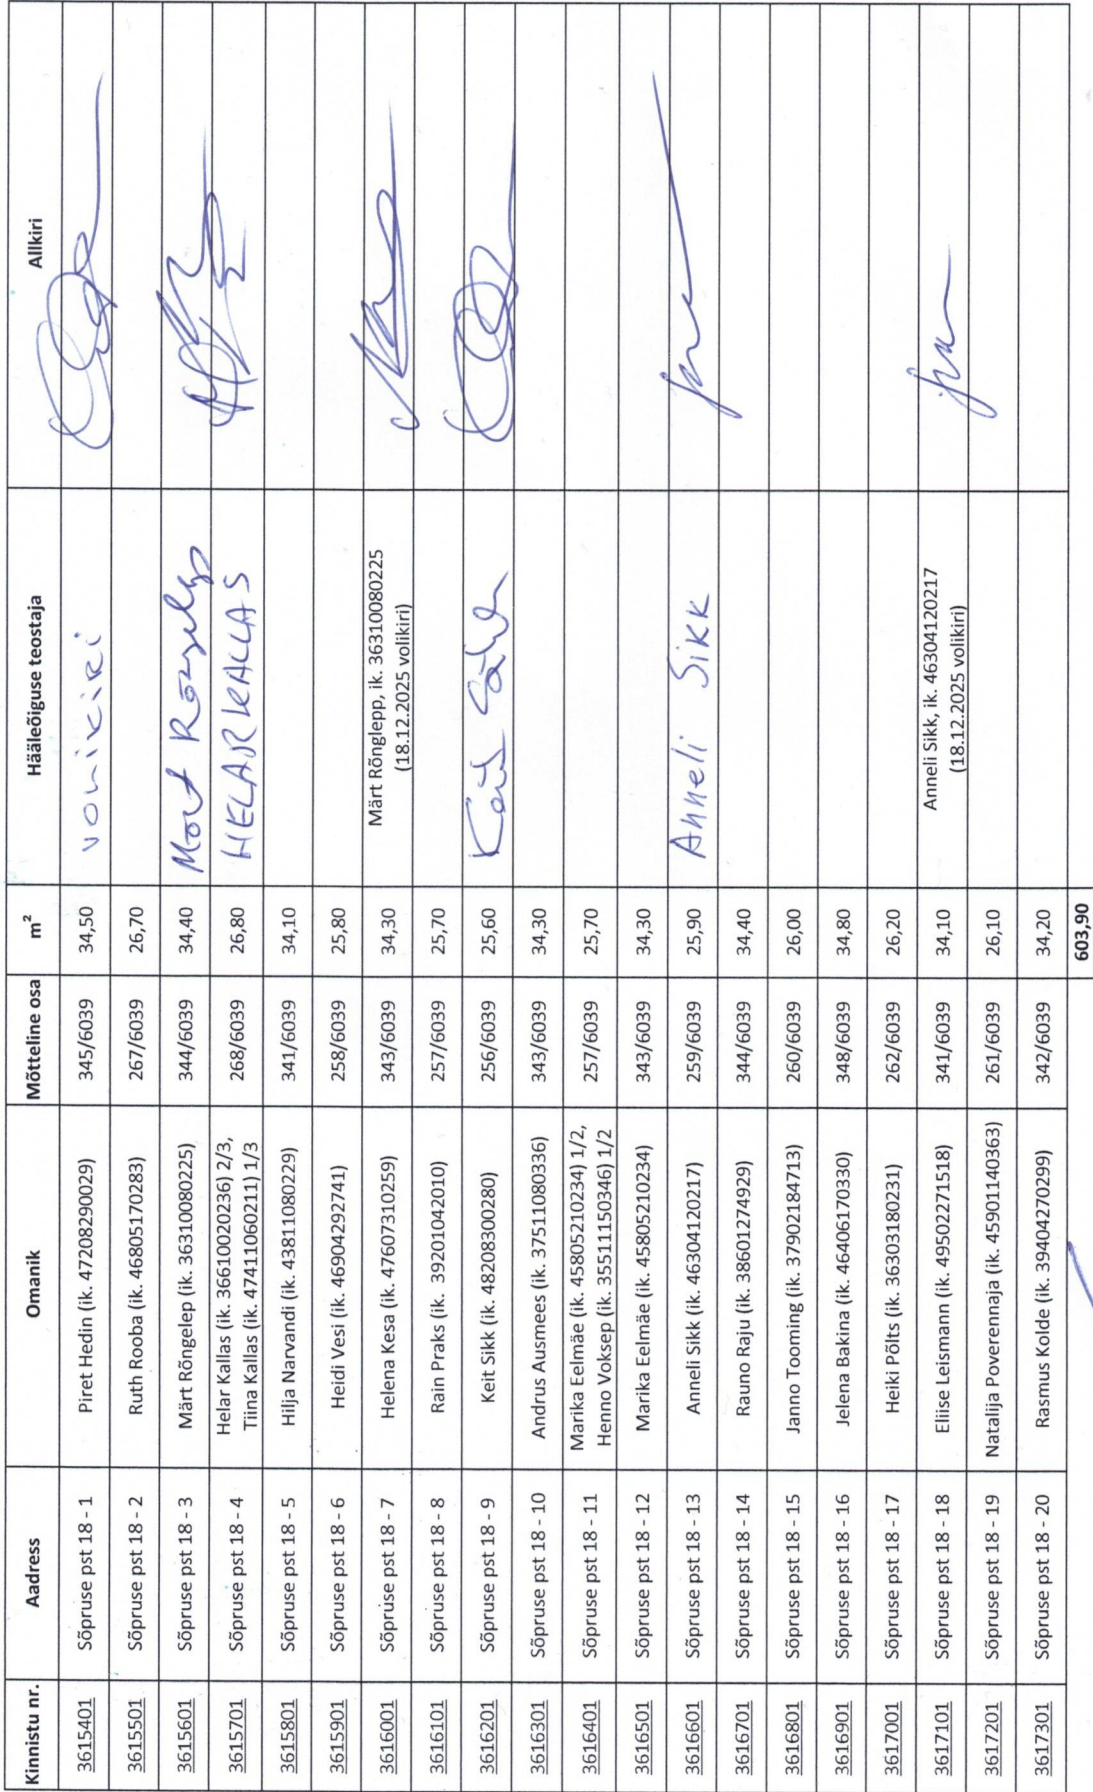 Kinnistu nr. Aadress Omanik Mõtteline osa m² Hääleõiguse teostaja Allkiri
3615401 Sõpruse pst 18 - 1 Piret Hedin (ik. 47208290029) 345/6039 34,50 volikiri
3615501 Sõpruse pst 18 - 2 Ruth Rooba (ik. 46805170283) 267/6039 26,70
3615601 Sõpruse pst 18 - 3 Märt Rõngelep (ik. 36310080225) 344/6039 34,40 Märt Rõngelep
3615701 Sõpruse pst 18 - 4 Helar Kallas (ik. 36610020236) 2/3, 268/6039 26,80 HELAR KALLAS
Tiina Kallas (ik. 47411060211) 1/3
3615801 Sõpruse pst 18 - 5 Hilja Narvandi (ik. 43811080229) 341/6039 34,10
3615901 Sõpruse pst 18 - 6 Heidi Vesi (ik. 46904292741) 258/6039 25,80
3616001 Sõpruse pst 18 - 7 Helena Kesa (ik. 47607310259) 343/6039 34,30 Märt Rõnglepp, ik. 36310080225
(18.12.2025 volikiri)
3616101 Sõpruse pst 18 - 8 Rain Praks (ik. 39201042010) 257/6039 25,70
3616201 Sõpruse pst 18 - 9 Keit Sikk (ik. 48208300280) 256/6039 25,60 Keit
3616301 Sõpruse pst 18 - 10 Andrus Ausmees (ik. 37511080336) 343/6039 34,30
3616401 Sõpruse pst 18 - 11 Marika Eelmäe (ik. 45805210234) 1/2, 257/6039 25,70
Henno Voksep (ik. 35511150346) 1/2
3616501 Sõpruse pst 18 - 12 Marika Eelmäe (ik. 45805210234) 343/6039 34,30
3616601 Sõpruse pst 18 - 13 Anneli Sikk (ik. 46304120217) 259/6039 25,90 Anneli Sikk
3616701 Sõpruse pst 18 - 14 Rauno Raju (ik. 38601274929) 344/6039 34,40
3616801 Sõpruse pst 18 - 15 Janno Tooming (ik. 37902184713) 260/6039 26,00
3616901 Sõpruse pst 18 - 16 Jelena Bakina (ik. 46406170330) 348/6039 34,80
3617001 Sõpruse pst 18 - 17 Heiki Põlts (ik. 36303180231) 262/6039 26,20
3617101 Sõpruse pst 18 - 18 Eliise Leismann (ik. 49502271518) 341/6039 34,10 Anneli Sikk, ik. 46304120217
(18.12.2025 volikiri)
3617201 Sõpruse pst 18 - 19 Natalija Poverennaja (ik. 45901140363) 261/6039 26,10
3617301 Sõpruse pst 18 - 20 Rasmus Kolde (ik. 39404270299) 342/6039 34,20
603,90